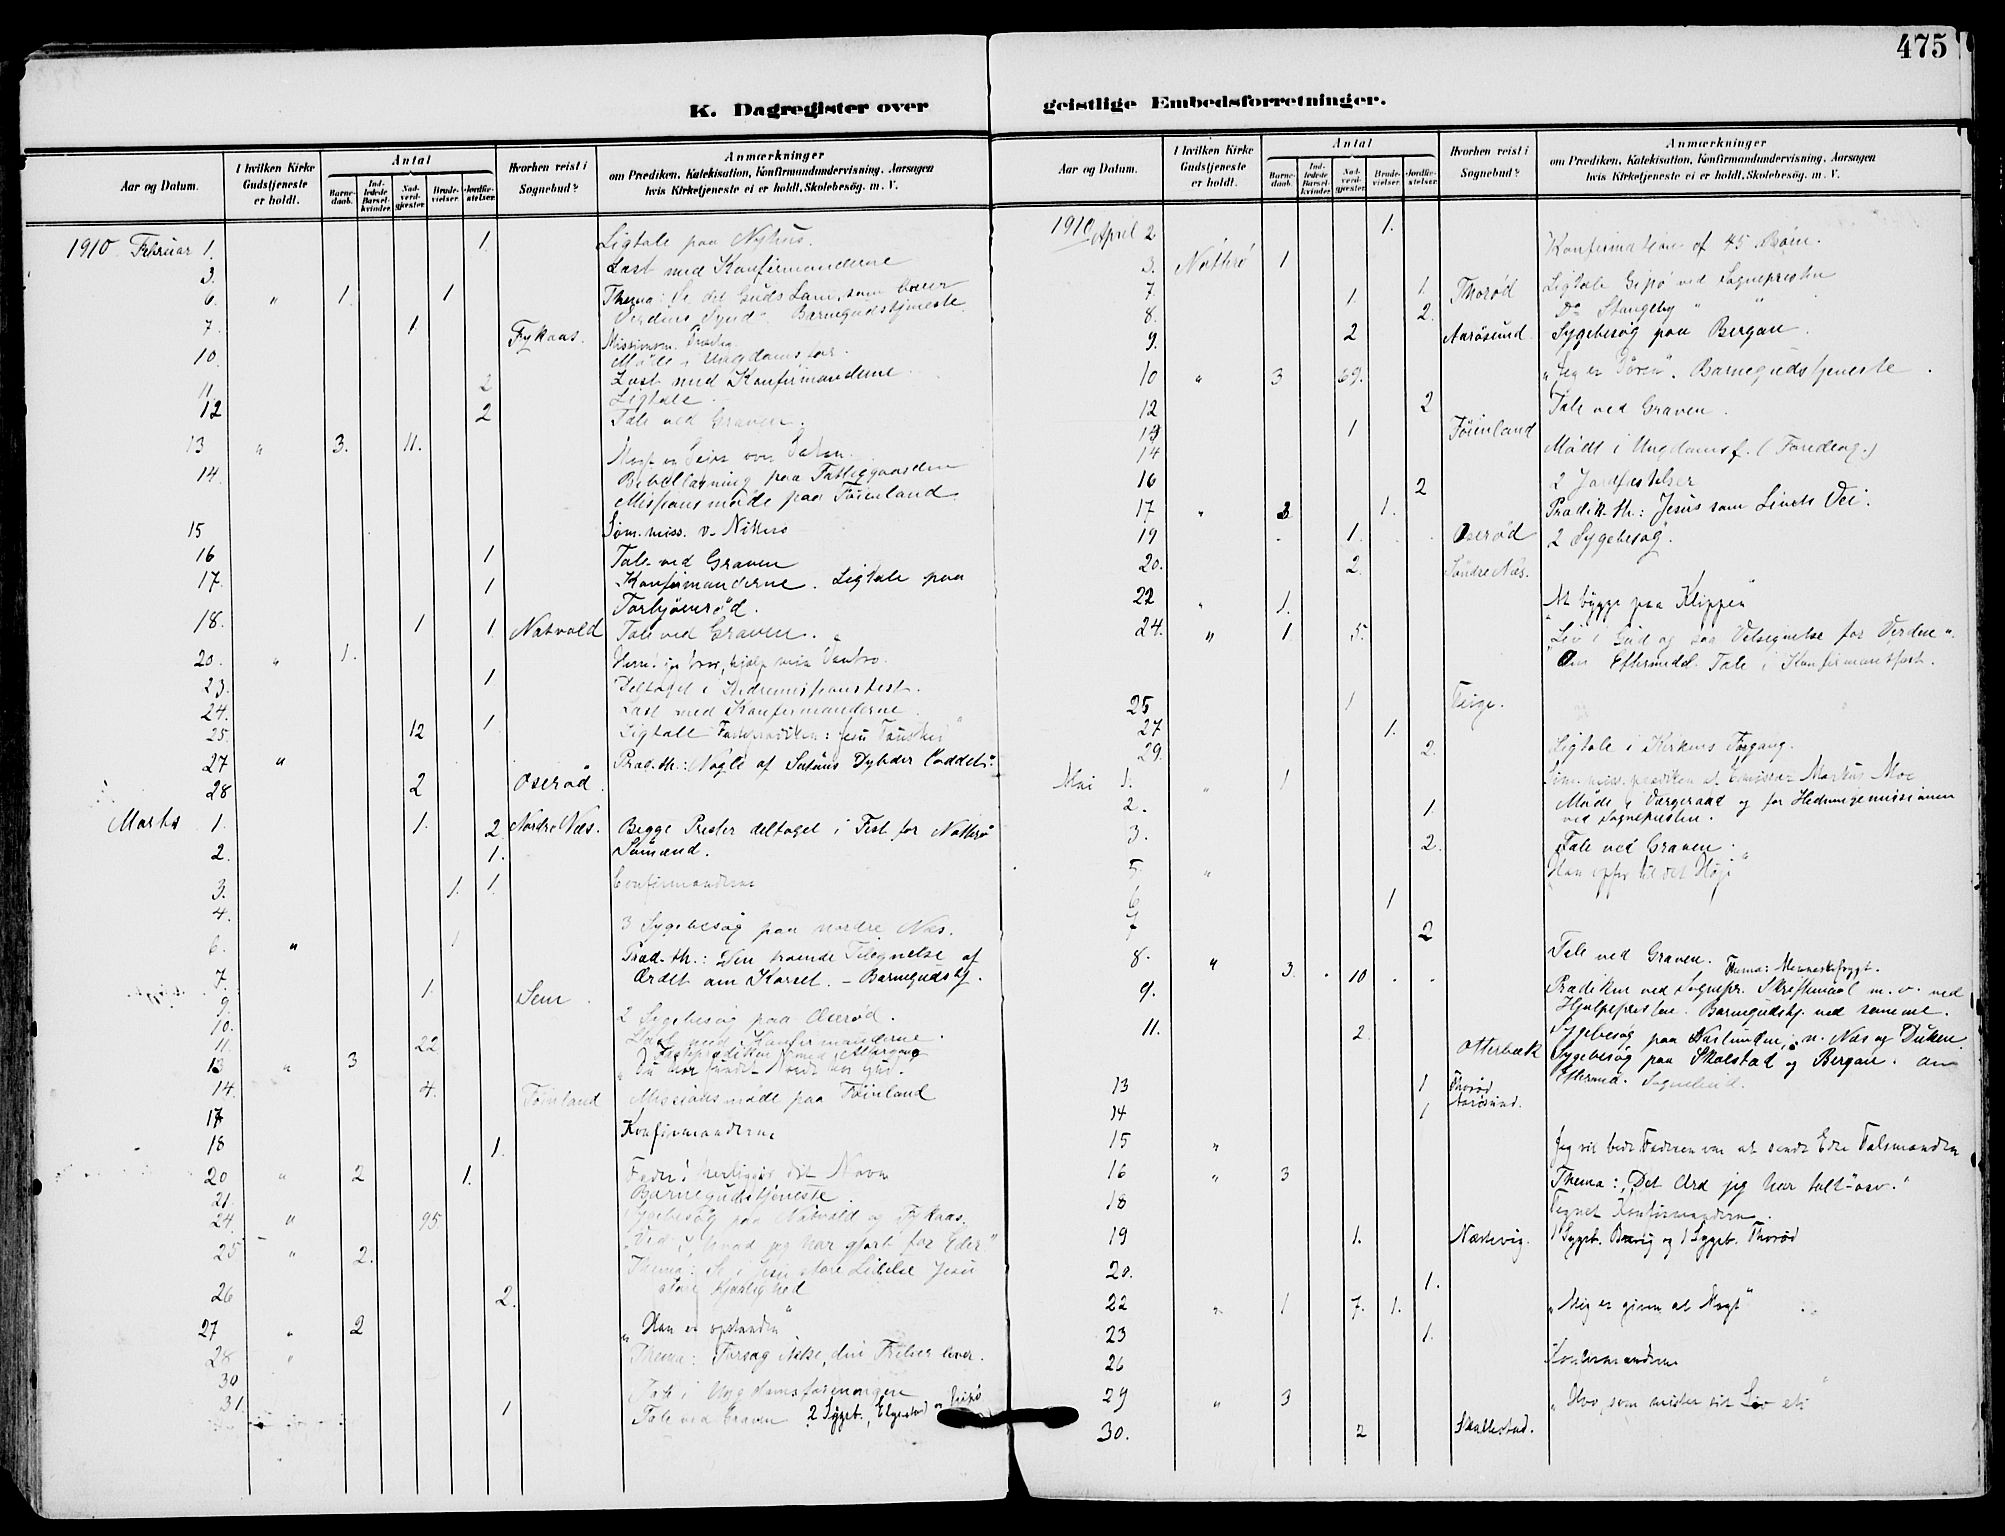 475
K. Dagregister over geistlige Embedsforretninger.
Aar og Datum.
I hvilken Kirke Gudstjeneste er holdt.
Antal
Barnedaab.
Indledede Barselkvinder.
Nadverdgjæster.
Brudevielser.
Jordfæstelser.
Hvorhen reist i Sognebud?
Anmærkninger
om Prædiken, Katekisation, Konfirmandundervisning, Aarsagen
hvis Kirketjeneste ei er holdt, Skolebesøg. m. V.
1910 Februar 1. 1. Ligtale paa Nyhus.
3. Læst med Konfirmanderne
6. " 1. 1. Thema: Se det Guds Lam, som bærer
Verdens Synd". Barnegudstjeneste.
7. 1. Fykaas.
10. Møde i Ungdomsfor.
Læst med Konfirmanderne.
11. 2 Ligtale.
12 2 Tale ved Graven.
13 " 3. 11.
14. Bibellæsning paa Fattiggaarden
Missionsmøde paa Föinland.
15
16 1 Tale ved Graven
17. 1 Konfirmanderne. Ligtale paa
Torbjönröd.
18. 1 1. Natvald Tale ved Graven.
20. " 1.
23. 1 Deltaget i Hedremissionsfest.
24. Læst med Konfirmanderne.
25. 12 1. Ligtale
27 " Præd. th.: Nogle af Satans Dybder
28 2 Oseröd.
Marts 1. 1. 2 Nordre Næs. Begge Prester deltaget i Fest for Nötterö
Sömænd.
2. 1.
3. 1. 1. Confirmanderne
4. 3 Sygebesøg paa nordre Næs.
6. " 1 Præd. th.: Den troende Tilegnelse af
Ordet om Korset. - Barnegudstj.
7. 1. Sem.
9. 2 Sygebesøg paa Oseröd.
10. Læst med Konfirmanderne.
11. 22
13 " 3 "Du har fundet Naade hos Gud.
14. 4. Föinland Missionsmøde paa Föinland
17 Konfirmanderne
18 1.
20 " 2 1. Fader! herliggjør dit Navn
Barnegudstjeneste.
21. Sygebesøg paa Natvald og Fykaas.
24. " 95 "Ved I hvad jeg har gjort for Eder"
25 " 2. Thema: I Jesu store Lidelse Jesu
store Kjærlighed
26 2.
27 " 2 "Han er opstanden"
28 " Thema: Forsag ikke, din Frelser lever.
30 Tale i Ungdomsforeningen
31 1 Tale ved Graven 2 Sygeb.,
Aar og Datum.
I hvilken Kirke Gudstjeneste er holdt.
Antal
Barnedaab.
Indledede Barselkvinder.
Nadverdgjæster.
Brudevielser.
Jordfæstelser.
Hvorhen reist i Sognebud?
Anmærkninger
om Prædiken, Katekisation, Konfirmandundervisning, Aarsagen
hvis Kirketjeneste ei er holdt, Skolebesøg. m. V.
1910 April 2 1.
3. Nötterö 1 Konfirmation af 45 Børn.
7. 1. 1. Thoröd Ligtale Gipö ved Sognepresten
8. 2. Do Stangeby "
9. 2 Aarösund Sygebesøg paa Bergan.
10 " 3 69. "Jeg er Dören". Barnegudstjeneste.
12 2 Tale ved Graven.
13 1 Föinland
14 Møde i Ungdomsf. (Foredrag.)
16 2 2 Jordfæstelser
17 " 3 1. Prædik. th.: Jesus som Livets Vei.
19 1. Oseröd 2 Sygebesøg.
20. 2. Søndre Næs.
22 " 1. At bygge paa Klippen
24. " 1. 5. "Liv i Gud og saa Velsignelse for Verden".
Om Eftermidd. Tale i Konfirmandfest.
25 1 Teige.
27 1.
29. 2. Ligtale i Kirkens Forgang.
Mai 1. " 1
2. 1. Møde i Værgeraad og for Hedningemissionen
ved Sognepresten.
3. 2. Tale ved Graven.
5. "
6 1
7 2 Tale ved Graven.
8. " 3. 10 Thema: Menneskefrygt.
Prædiken ved Sognepr. Skriftemaal m. v. ved
Hjelpepresten. Barnegudstj. ved samme.
9.
11. 2. Otterbæk Sygebesøg paa n. Næs og
Sygebesøg paa Skalstad og Bergan. om
Eftermid. Sognebud.
13 1 Thoröd
Aarösund.
14 1
15 " Jeg vil bede Faderen om at sende Eder Talsmanden
16 " 3 Thema: "Det Ord jeg har talt" osv.
18 Tegnet Konfirmandern.
19 1. Næstevig. 1 Sygeb. og 1 Sygeb. Thoröd
20. 1.
22 " 1 7. 1. "Mig er given al Magt"
23 1.
26 Konfirmanderne
29 " 3 "Hvo, som mister sit Liv etc"
30. 2 Skallestad.